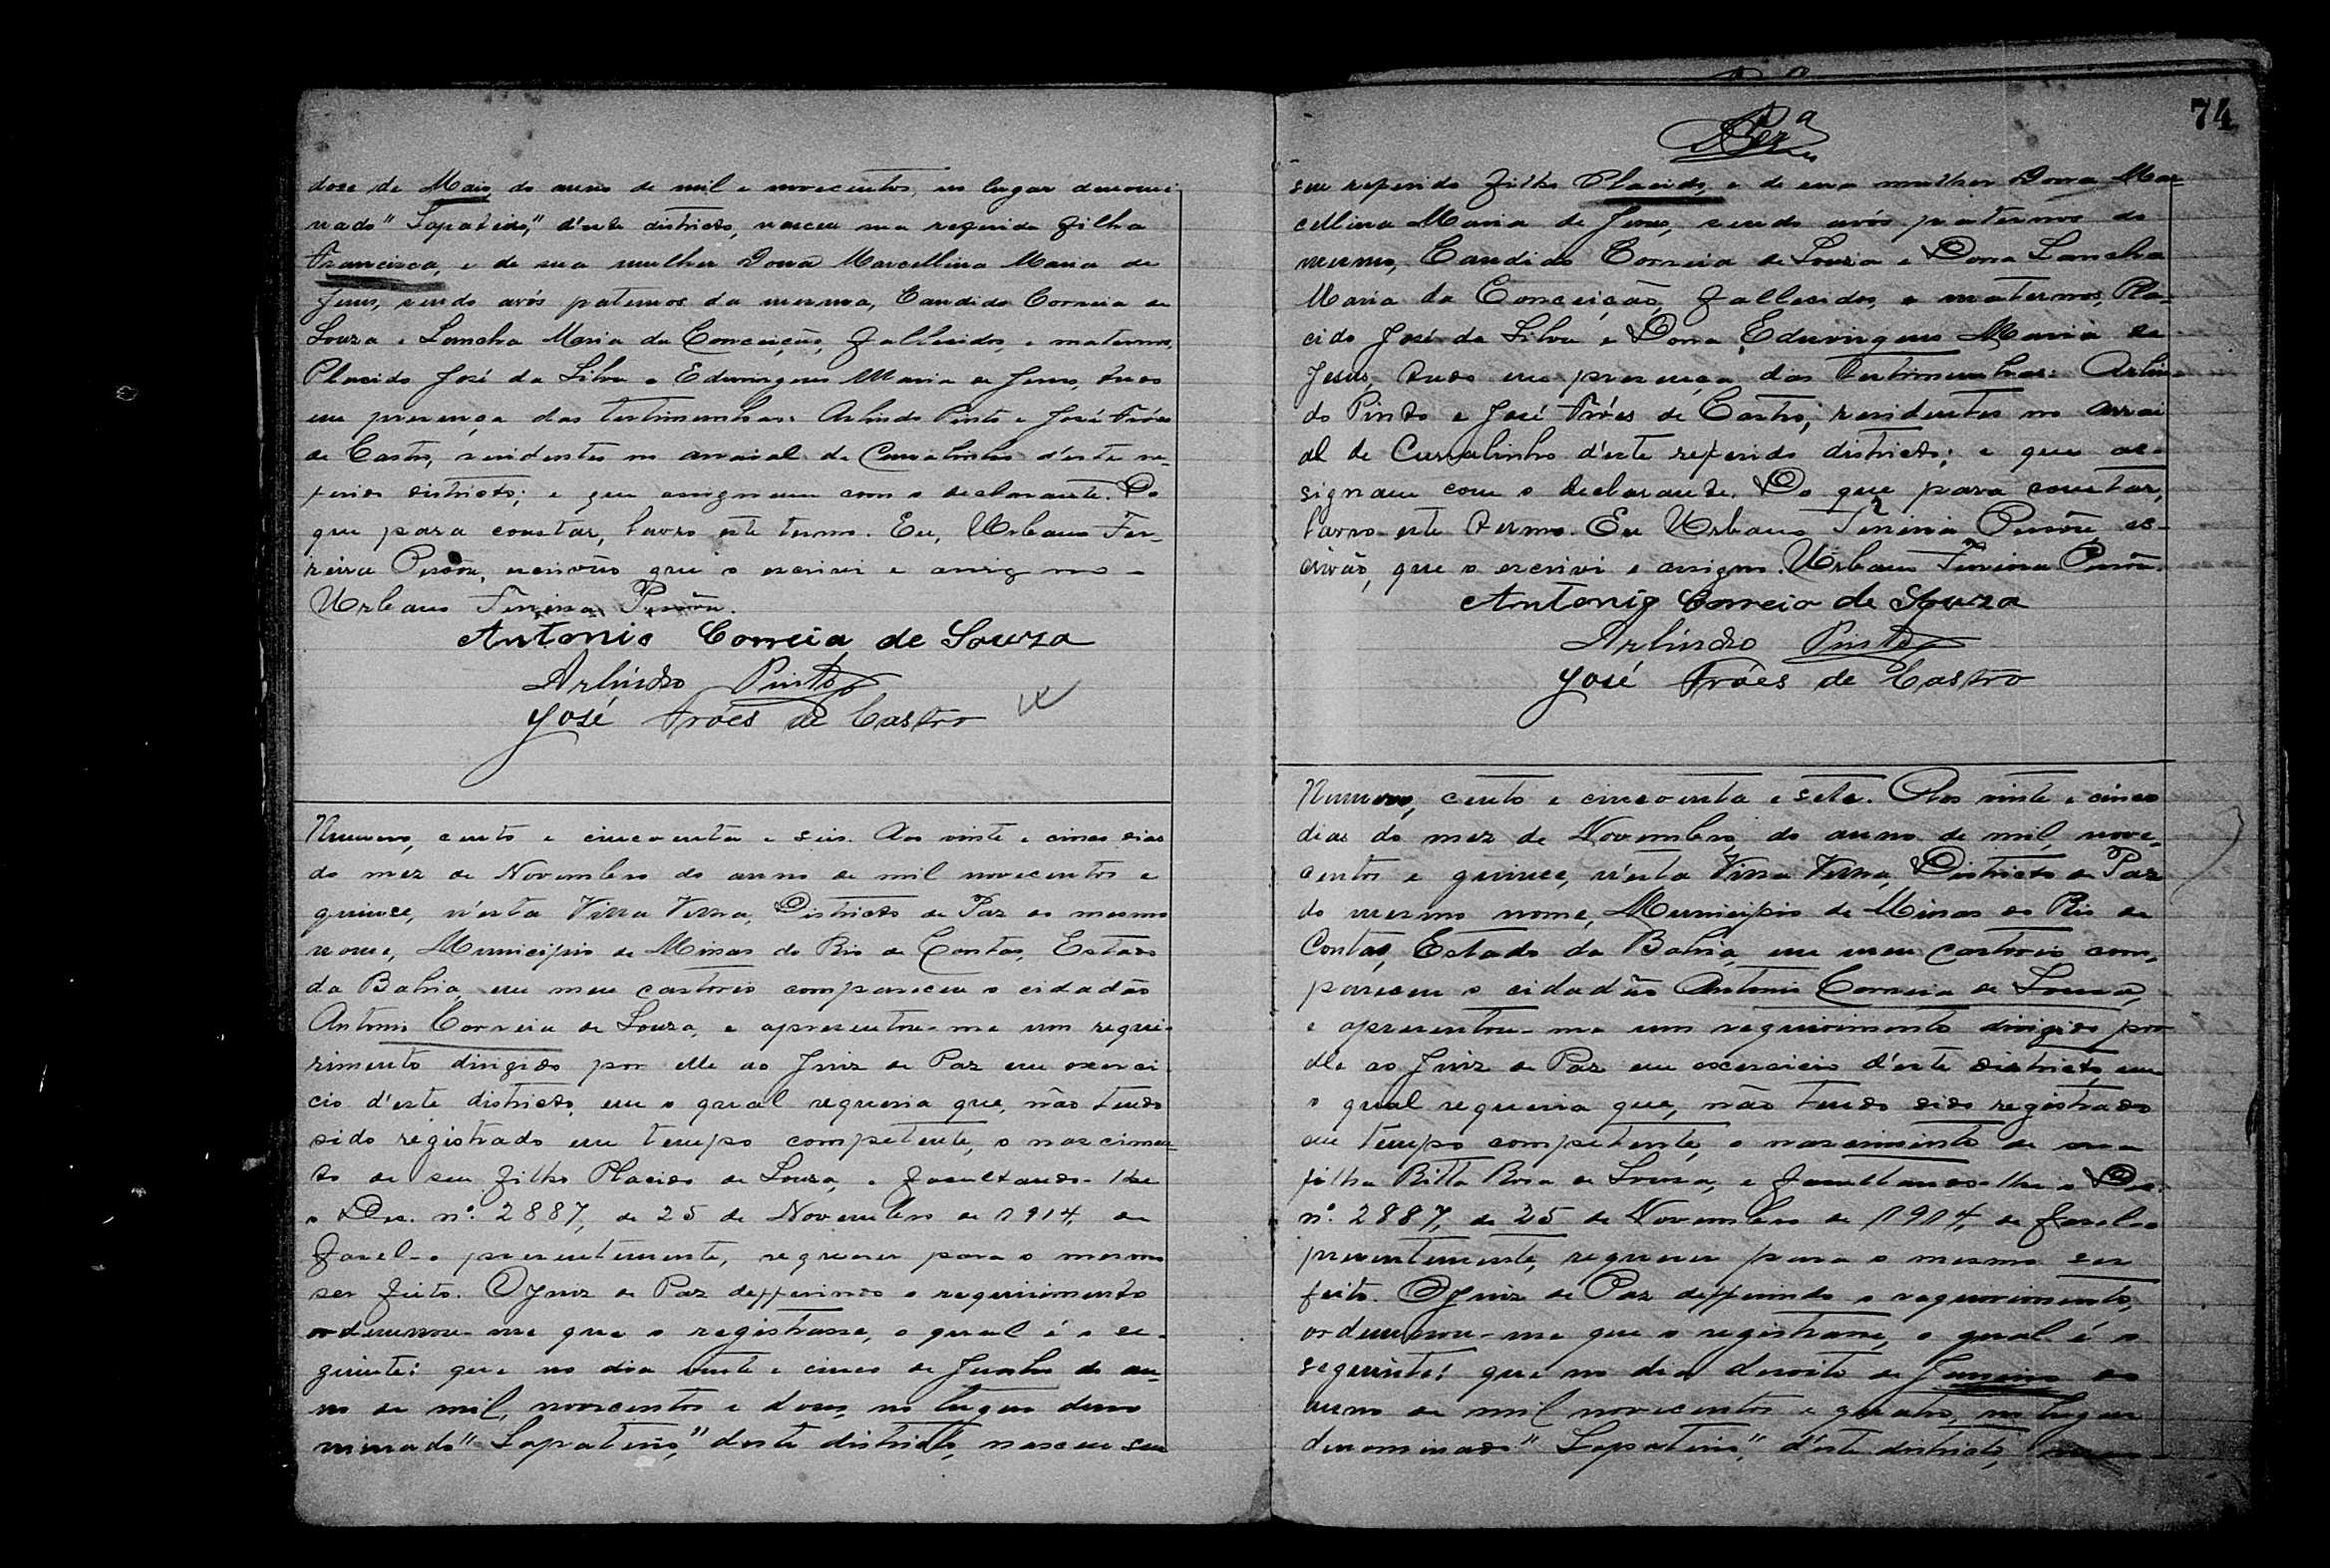 doze de Maio do anno de mil e novecentos, no lugar denomi-
nado "Sapateiro," d'este districto, nasceu sua referida filha
Francisca, e de sua mulher Dona Marcellina Maria de
Jesus, sendo avós paternos da mesma, Candido Correia de
Souza e Sancha Maria da Conceição, fallecidos, e maternos,
Placido José da Silva e Eduvirgens Maria de Jesus, tudo
em presença das testimunhas: Arlindo Pinto e José Fróes
de Castro, residentes no arraial de Curralinho d'este re-
ferido districto; e que assignam com o declarante. Do
que para constar, lavro este termo. Eu, Urbano Fer-
reira Pessôa, escrivão que o escrivi e assigno -
Urbano Ferreira Pessôa.
Antonio Correia de Souza
Arlindo Pinto
José Fróes de Castro
Numero, cento e cincoenta e seis. Aos vinte e cinco dias
do mez de Novembro do anno de mil novecentos e
quince, n'esta Villa Velha, Districto de Paz do mesmo
nome, Municipio de Minas do Rio de Contas, Estado
da Bahia, em meu cartorio compareceu o cidadão
Antonio Correia de Souza, e apresentou-me um reque-
rimento dirigido por elle ao Juiz de Paz em exerci-
cio d'este districto, em o qual requeria que, não tendo
sido registrado em tempo competente, o nascimen-
to de seu filho Placido de Souza, e facultando-lhe
o Dec. nº. 2887, de 25 de Novembro de 1914, de
fazel-o presentemente, requerer para o mesmo
ser feito. O Juiz de Paz defferindo o requirimento
ordennou-me que o registrasse, o qual é o se-
guinte: que no dia vinte e cinco de Junho do an-
no de mil, novecentos e dous, no lugar deno
minado "Sapateiro," deste districto, nasceu seu
74
seu referido filho Placido, e de sua mulher Dona Mar-
cellina Maria de Jesus, sendo avós paternos do
mesmo, Candido Correia de Souza e Dona Sancha
Maria da Conceição, fallecidos, e maternos, Pla-
cido José da Silva e Dona Eduvirgens Maria de
Jesus, tudo em presença das testimunhas: Arlin-
do Pinto e José Fróes de Castro, residentes no arrai
al de Curralinho d'este referido districto; e que as-
signam com o declarante. Do que para constar,
lavro este termo. Eu Urbano Ferreira Pessôa, es-
crivão, que o escrivi e assigno. Urbano Ferreira Pessôa.
Antonio Correia de Souza
Arlindo Pinto
José Fróes de Castro
Numero, cento e cincoenta e sete. Aos vinte e cinco
dias do mez de Novembro do anno de mil, nove-
centos e quince, n'esta Villa Velha, Districto de Paz
do mesmo nome, Municipio de Minas do Rio de
Contas, Estado da Bahia, em meu cartorio com-
pareceu o cidadão Antonio Correia de Souza,
e apresentou-me um requirimento dirigido por
elle ao Juiz de Paz em exercicio d'este districto, em
o qual requeria que, não tendo sido registrado
em tempo competente, o nascimento de sua
filha Ritta Rosa de Souza, e facultando-lhe o Dec.
nº. 2887, de 25 de Novembro de 1914, de fazel-o
presentemente, requerer para o mesmo ser
feito. O Juiz de Paz defferindo o requerimento,
ordennou-me que o registrasse, o qual é o
seguinte: que no dia dezoito de Janeiro do
anno de mil novecentos e quatro, no lugar
denominado "Sapateiro," d'este districto,